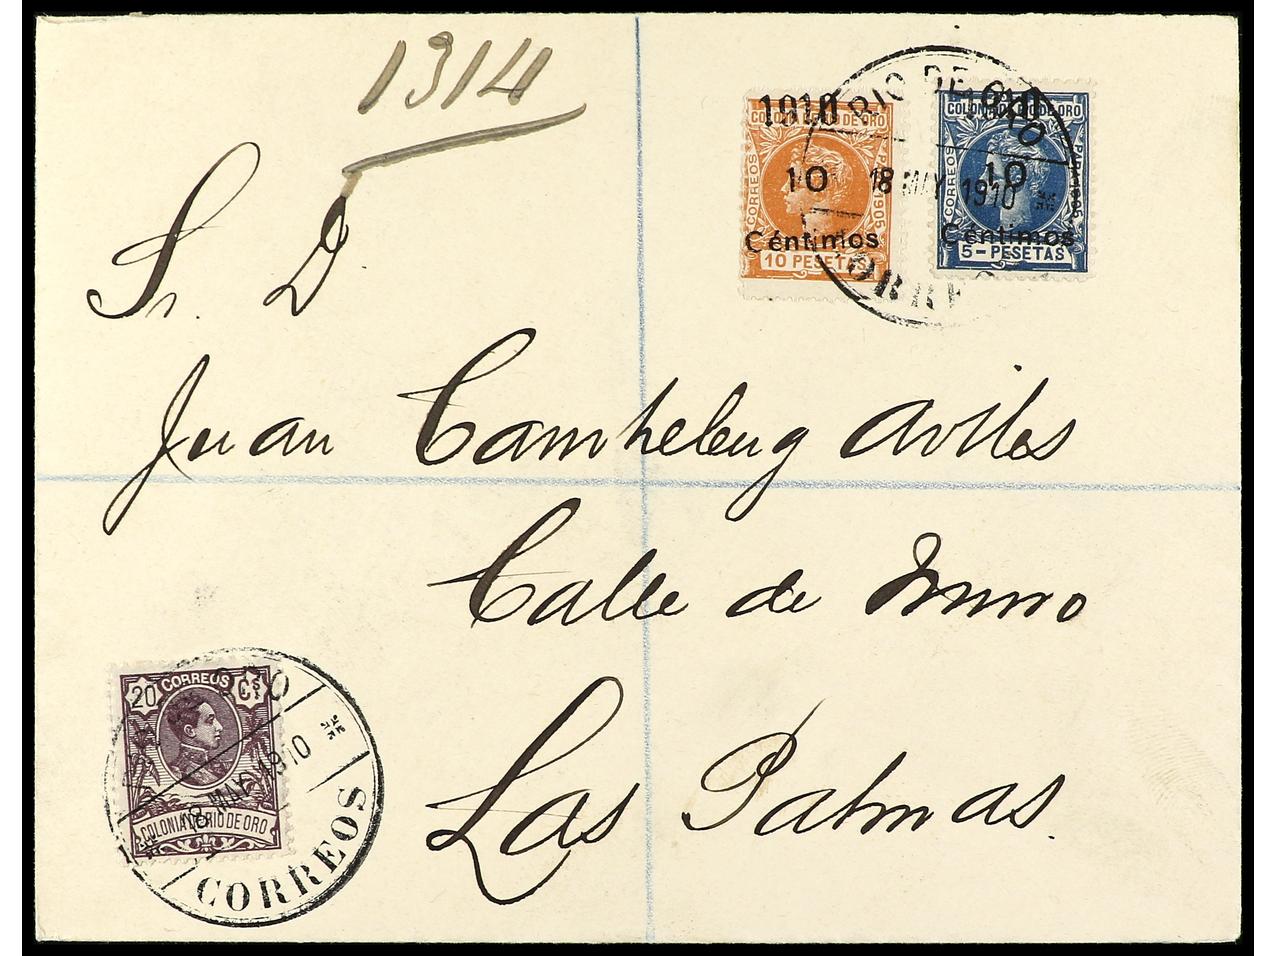 1314
RIO DE ORO
1910
COLONIA DE RIO DE ORO
CORREOS
PARA 1905
10
Céntimos
10 PESETAS
18 MAY 1910
1910
COLONIA DE RIO DE ORO
CORREOS
PARA 1905
10
Céntimos
5- PESETAS
Sr. D
Juan Avilés
Calle de Muro
Las Palmas.
20 CORREOS Cs
COLONIA DE RIO DE ORO
18 MAY 1910
CORREOS